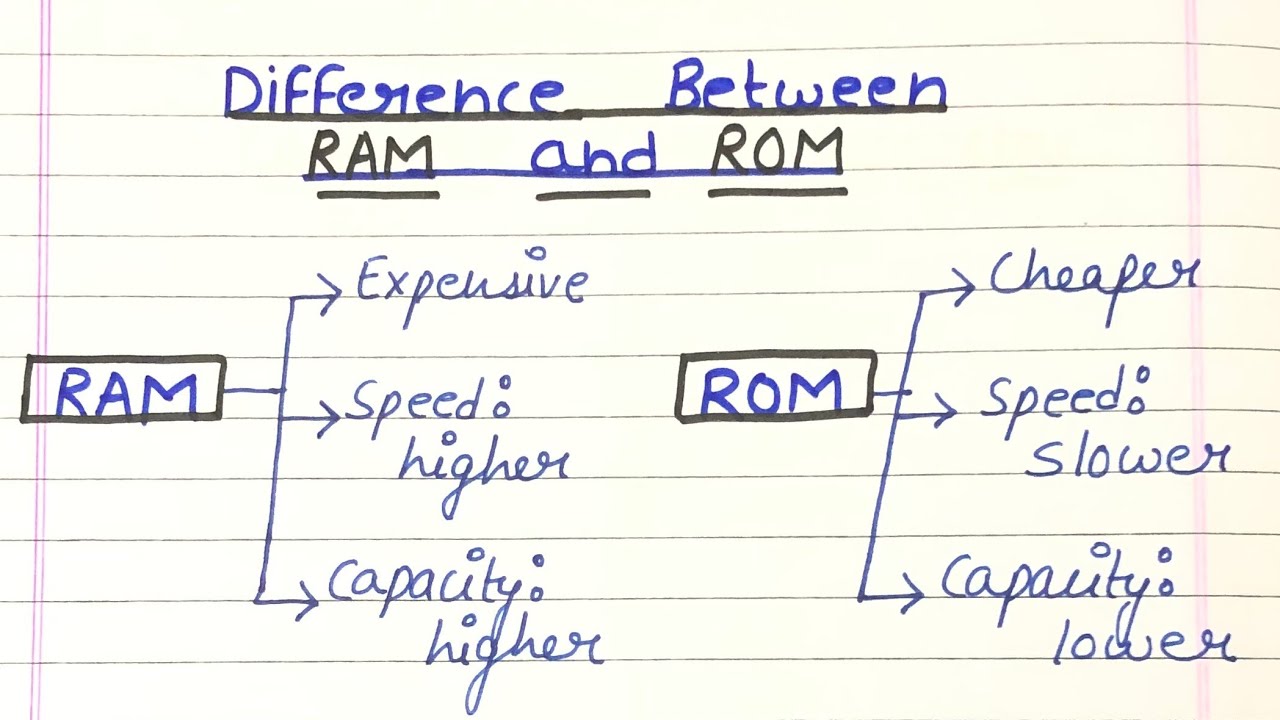 Difference Between
RAM and ROM
RAM
Expensive
Speed:
higher
Capacity:
higher
ROM
Cheaper
Speed:
slower
Capacity:
lower